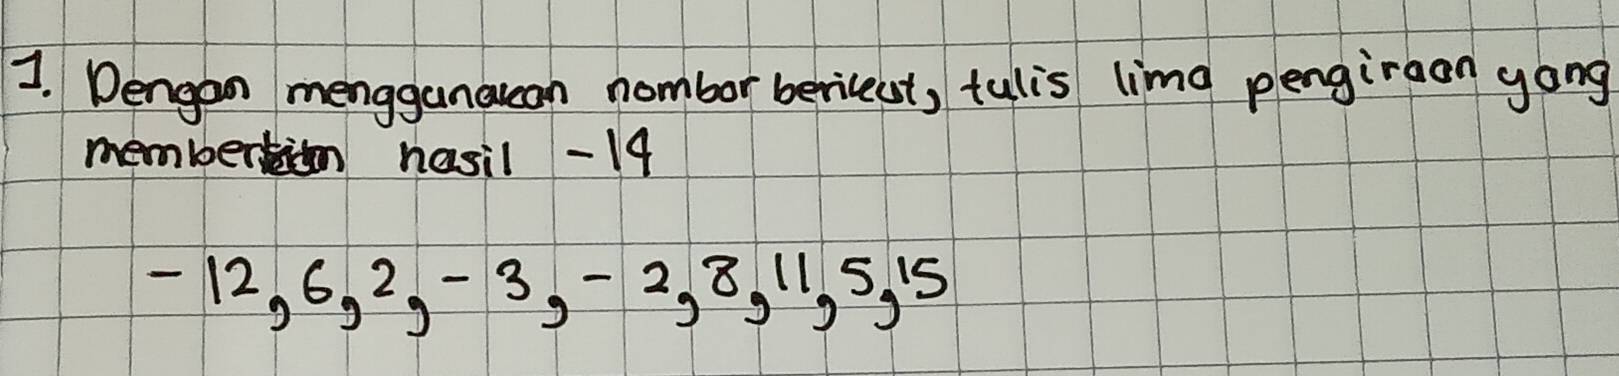 1. Dengan menggunakan nombor berikut, tulis lima pengiraan yang
memberikan hasil -14
-12, 6, 2, -3, -2, 8, 11, 5, 15